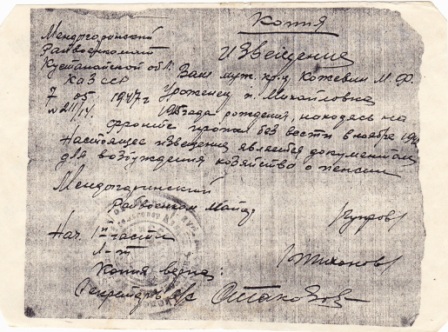 Копия
Мендыгаринский
Райвоенкомат
Кустанайской обл.
КазССР
7 05 1947 г
Извещение
Ваш муж кр-ц Кожевин М. Ф.
Уроженец п. Михайловка
года рождения, находясь на
фронте пропал без вести в ноябре 194
Настоящее извещение является документом
для возбуждения ходатайства о пенсии
Мендыгаринский
Райвоенком Майор
Нач. 1й части
Л-т
Тихонов
Копия верна:
Секретарь с/с